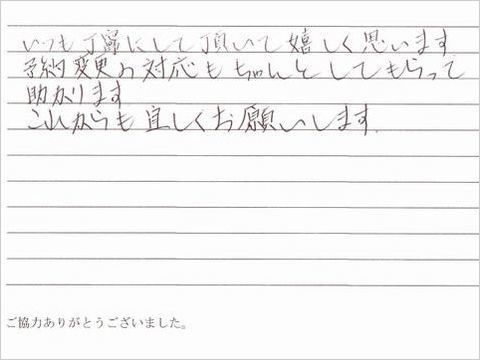 いつも丁寧にして頂いて嬉しく思います
予約変更の対応もちゃんとしてもらって
助かります
これからも宜しくお願いします。
ご協力ありがとうございました。